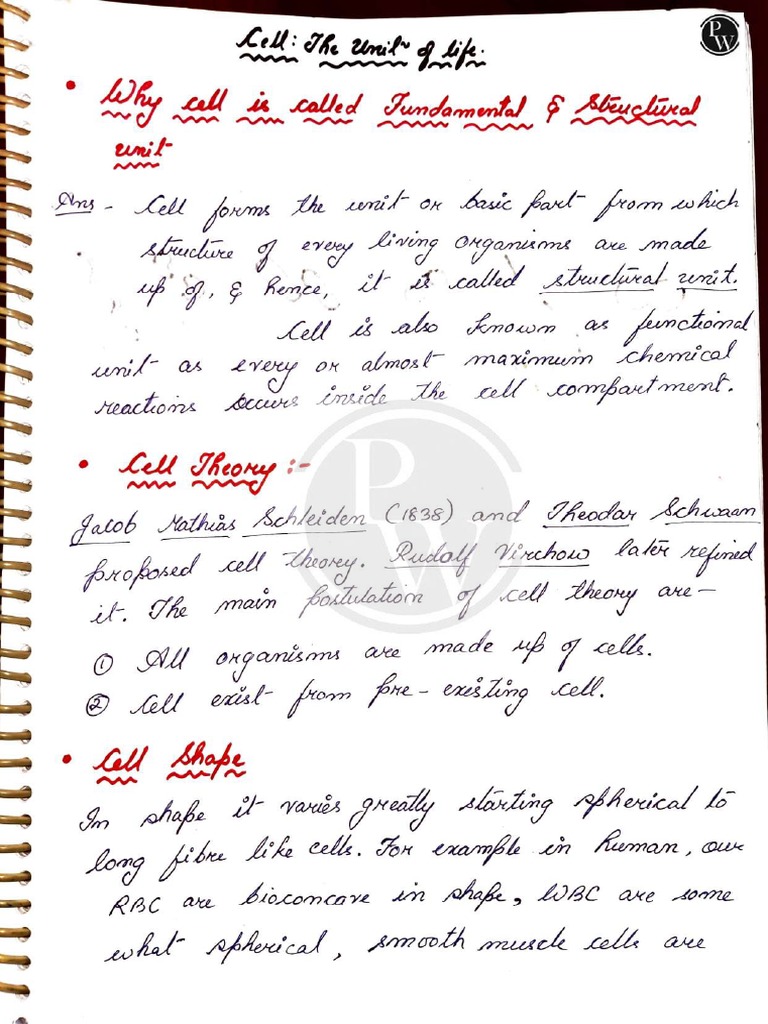 PW
Cell: The Unit of life.
• Why cell is called Fundamental & Structural
unit
Ans - Cell forms the unit or basic part from which
structure of every living organisms are made
up of, & hence, it is called structural unit.
Cell is also known as functional
unit as every or almost maximum chemical
reactions occurs inside the cell compartment.
• Cell Theory :-
Jacob Mathias Schleiden (1838) and Theodar Schwaan
proposed cell theory. Rudolf Virchow later refined
it. The main postulation of cell theory are -
① All organisms are made up of cells.
② Cell exist from pre-existing cell.
• Cell Shape
In shape it varies greatly starting spherical to
long fibre like cells. For example in human, our
RBC are bioconcave in shape, WBC are some
what spherical, smooth muscle cells are
PW